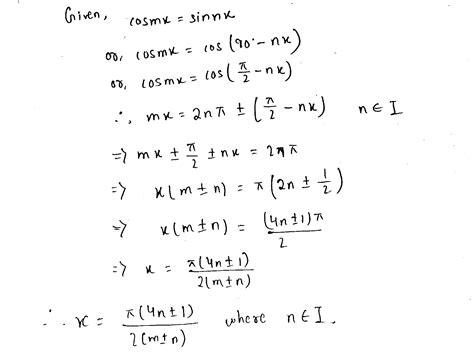 Given, cosmx = sinnx
or, cosmx = cos (90° - nx)
or, cosmx = cos (π/2 - nx)
∴, mx = 2nπ ± (π/2 - nx) n ∈ I
=> mx ± π/2 ± nx = 2nπ
=> x(m ± n) = π (2n ± 1/2)
=> x(m ± n) = (4n ± 1)π/2
=> x = π(4n ± 1)/2(m ± n)
∴ x = π(4n ± 1)/2(m ± n) where n ∈ I.